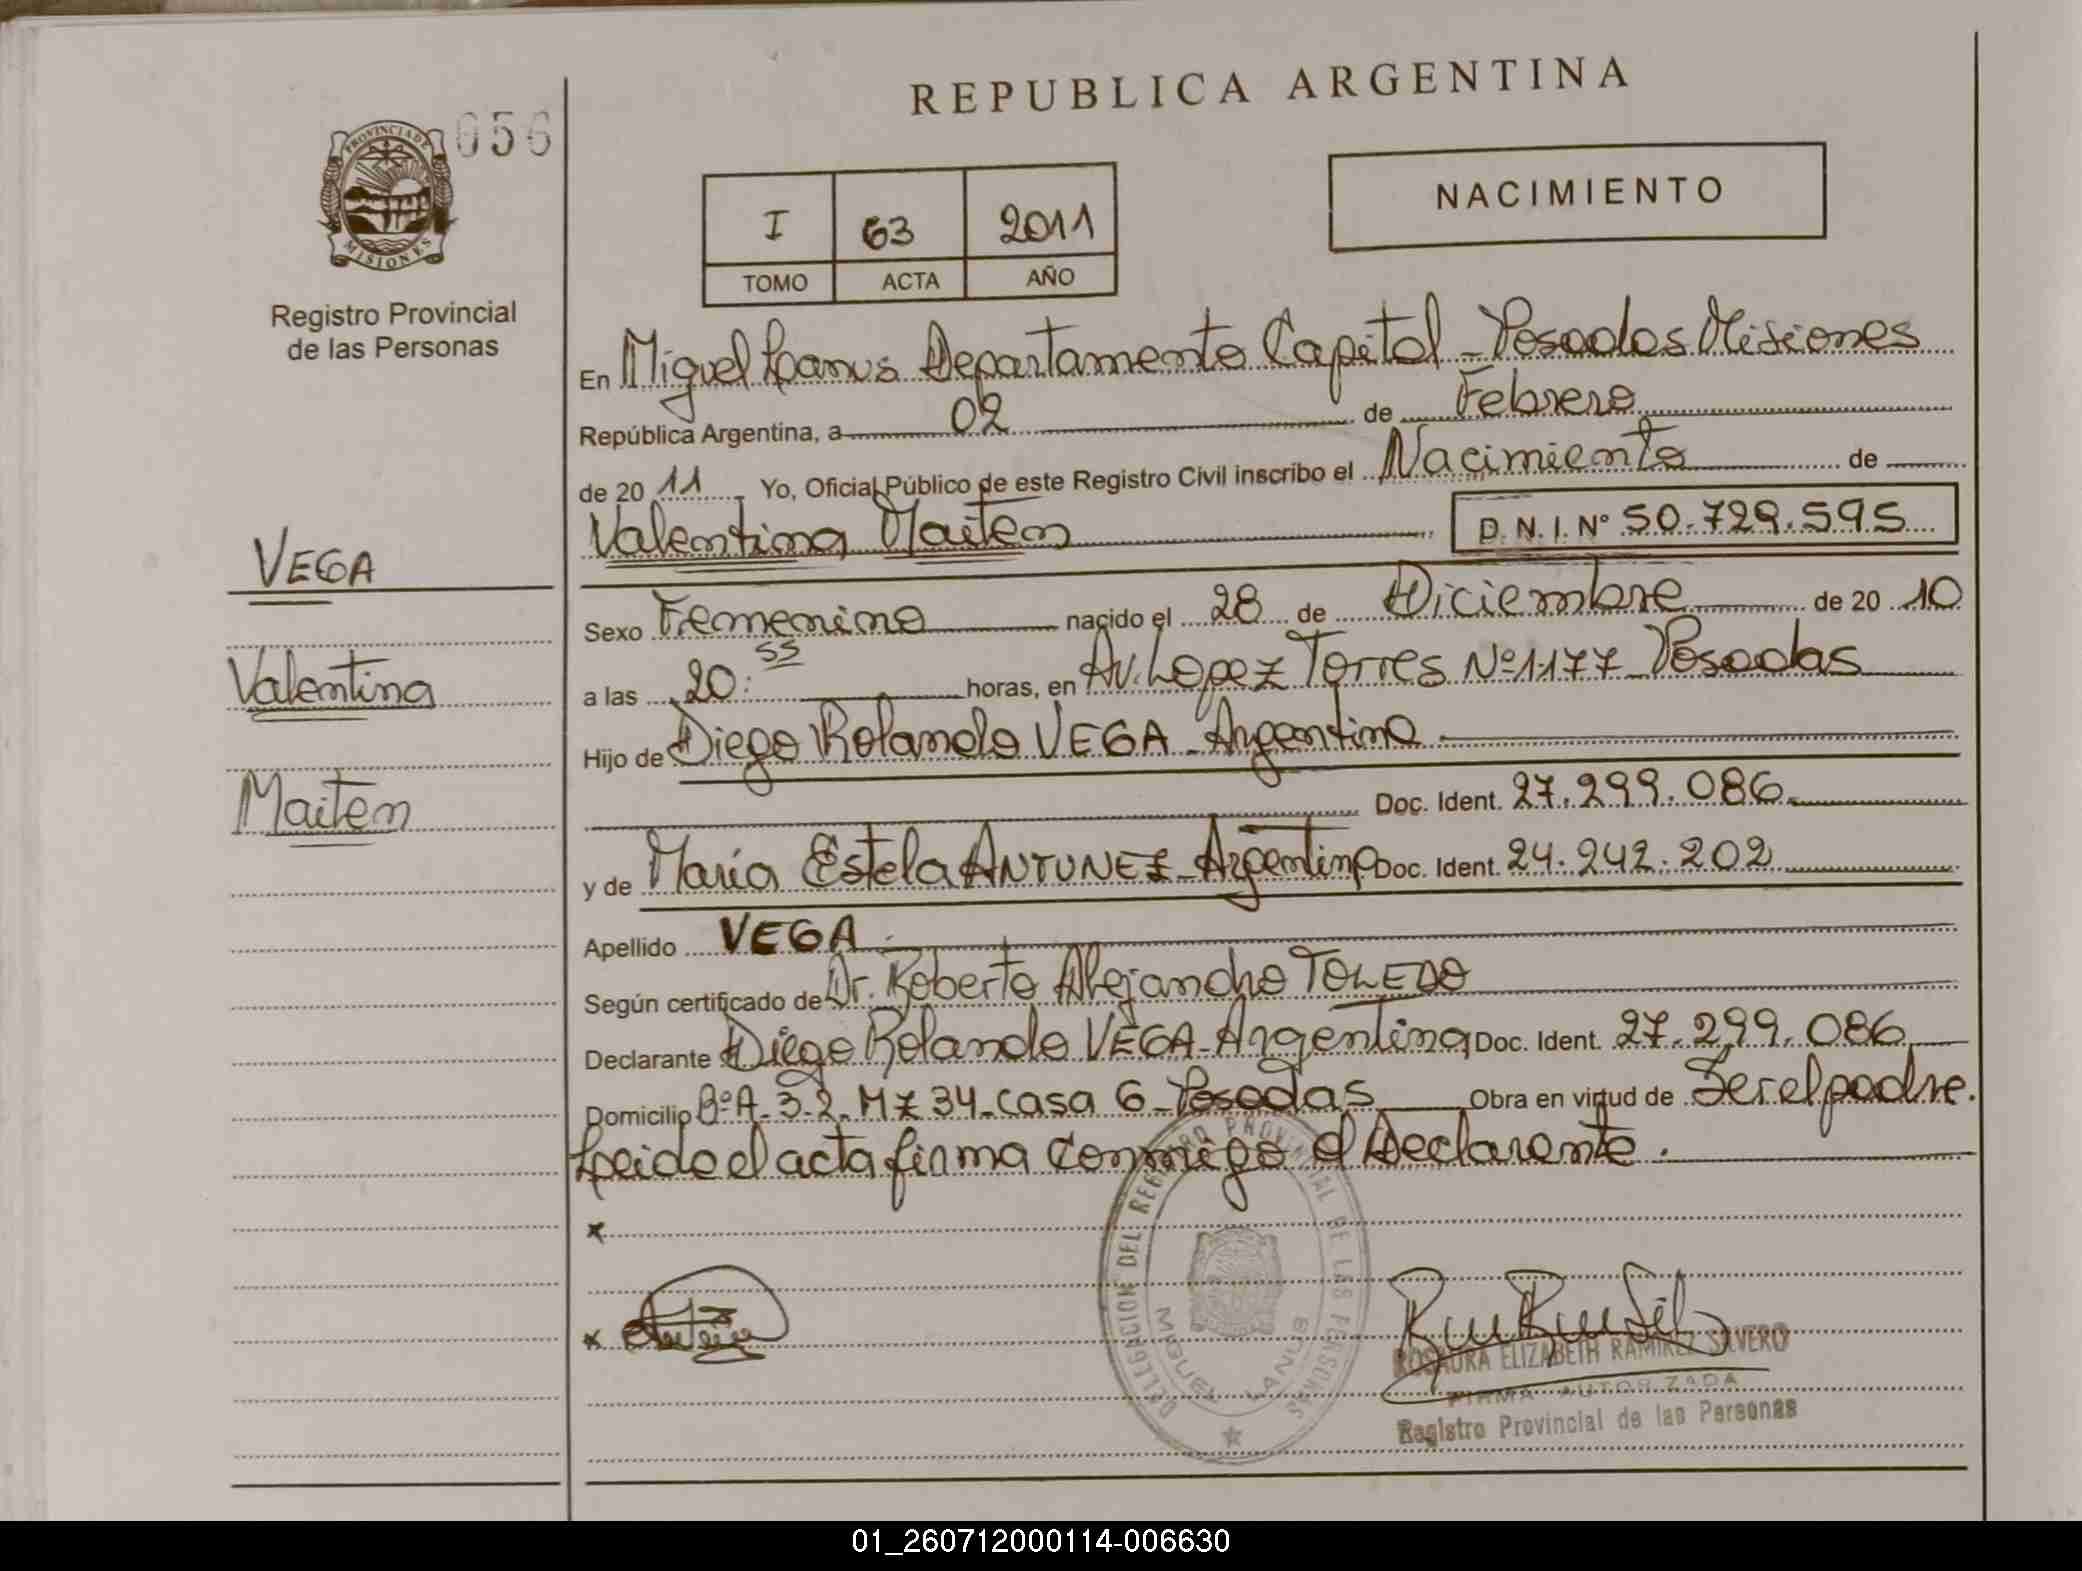 REPUBLICA ARGENTINA
056
PROVINCIA DE
MISIONES
Registro Provincial
de las Personas
I 63 2011
TOMO ACTA AÑO
NACIMIENTO
En Miguel Lanus Departamento Capital - Posadas Misiones
República Argentina, a 02 de Febrero
de 20 11 Yo, Oficial Público de este Registro Civil inscribo el Nacimiento de
Valentina Maiten D.N.I. Nº 50.729.595
VEGA
Valentina
Maiten
Sexo Femenino nacido el 28 de Diciembre de 20 10
a las 20:55 horas, en Av. Lopez Torres Nº 1177 - Posadas
Hijo de Diego Rolando VEGA - Argentino
Doc. Ident. 27.299.086
y de María Estela ANTUNEZ - Argentina Doc. Ident. 24.242.202
Apellido VEGA
Según certificado de Dr. Roberto Alejandro TOLEDO
Declarante Diego Rolando VEGA - Argentino Doc. Ident. 27.299.086
Domicilio Bº A-3-2 - MZ 34 - casa 6 - Posadas Obra en virtud de Ser el padre.
Leida el acta firma conmigo el Declarante.
x
x
DELEGACION DEL REGISTRO PROVINCIAL DE LAS PERSONAS
MIGUEL LANUS
ROSAURA ELIZABETH RAMIREZ SILVERO
FIRMA AUTORIZADA
Registro Provincial de las Personas
01_260712000114-006630